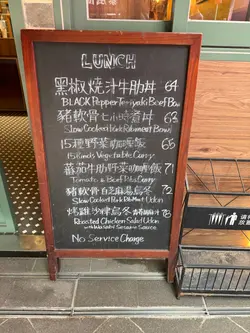 LUNCH
黑椒燒汁牛肋丼 64
BLACK Pepper Teriyaki Beef Bowl
豬軟骨七小時煮丼 63
Slow Cooked Pork Rib Meat Bowl
15種野菜咖喱飯 65
15 kinds Vegetable Curry
蕃茄牛肋野菜咖喱飯 71
Tomato & Beef Ribs Curry
豬軟骨白芝麻湯烏冬 72
Slow Cooked Pork Rib Meat Udon
烤雞沙律烏冬 78
Roasted Chicken Salad Udon
with Wasabi Sesame Sauce
No Service Charge